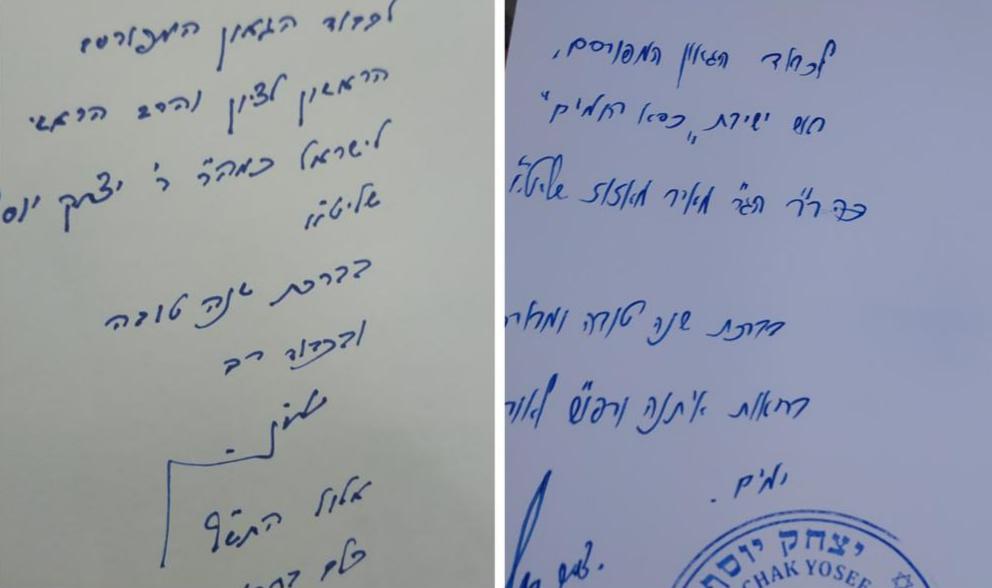 לכבוד הגאון המפורסם
הראשון לציון והרב הראשי
לישראל כמהר"ר ר' יצחק יוס
שליט"א
בברכת שנה טובה
ובכבוד רב
אלול התש"ף
לכבוד הגאון המפורסם,
ראש ישיבת "כסא רחמים"
כמהר"ר הגר"מ מאיר מאזוז שליט"א
בברכת שנה טובה ומבור
בריאות איתנה ורפו"ש לאור
ימים.
יצחק יוסף
CHAK YOSEF